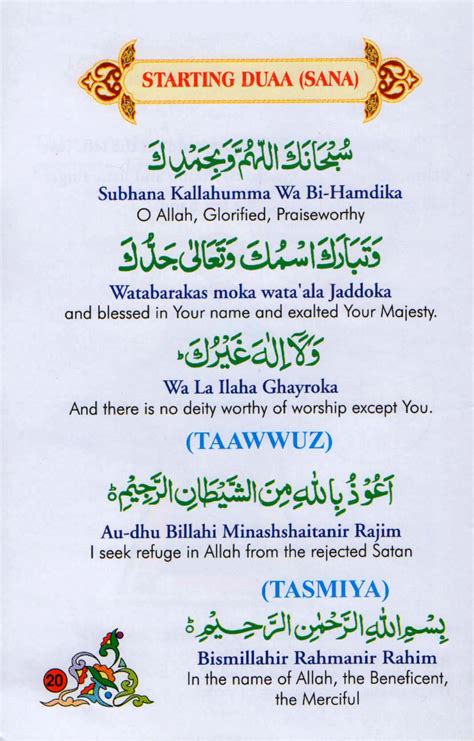 STARTING DUAA (SANA)
سُبْحَانَكَ اللّٰهُمَّ وَبِحَمْدِكَ
Subhana Kallahumma Wa Bi-Hamdika
O Allah, Glorified, Praiseworthy
وَتَبَارَكَ اسْمُكَ وَتَعَالٰى جَدُّكَ
Watabarakas moka wata'ala Jaddoka
and blessed in Your name and exalted Your Majesty.
وَلَآ اِلٰهَ غَيْرُكَ ؕ
Wa La Ilaha Ghayroka
And there is no deity worthy of worship except You.
(TAAWWUZ)
اَعُوْذُ بِاللّٰهِ مِنَ الشَّيْطَانِ الرَّجِيْمِ ؕ
Au-dhu Billahi Minashshaitanir Rajim
I seek refuge in Allah from the rejected Satan
(TASMIYA)
بِسْمِ اللّٰهِ الرَّحْمٰنِ الرَّحِيْمِ ؕ
Bismillahir Rahmanir Rahim
In the name of Allah, the Beneficent,
the Merciful
20